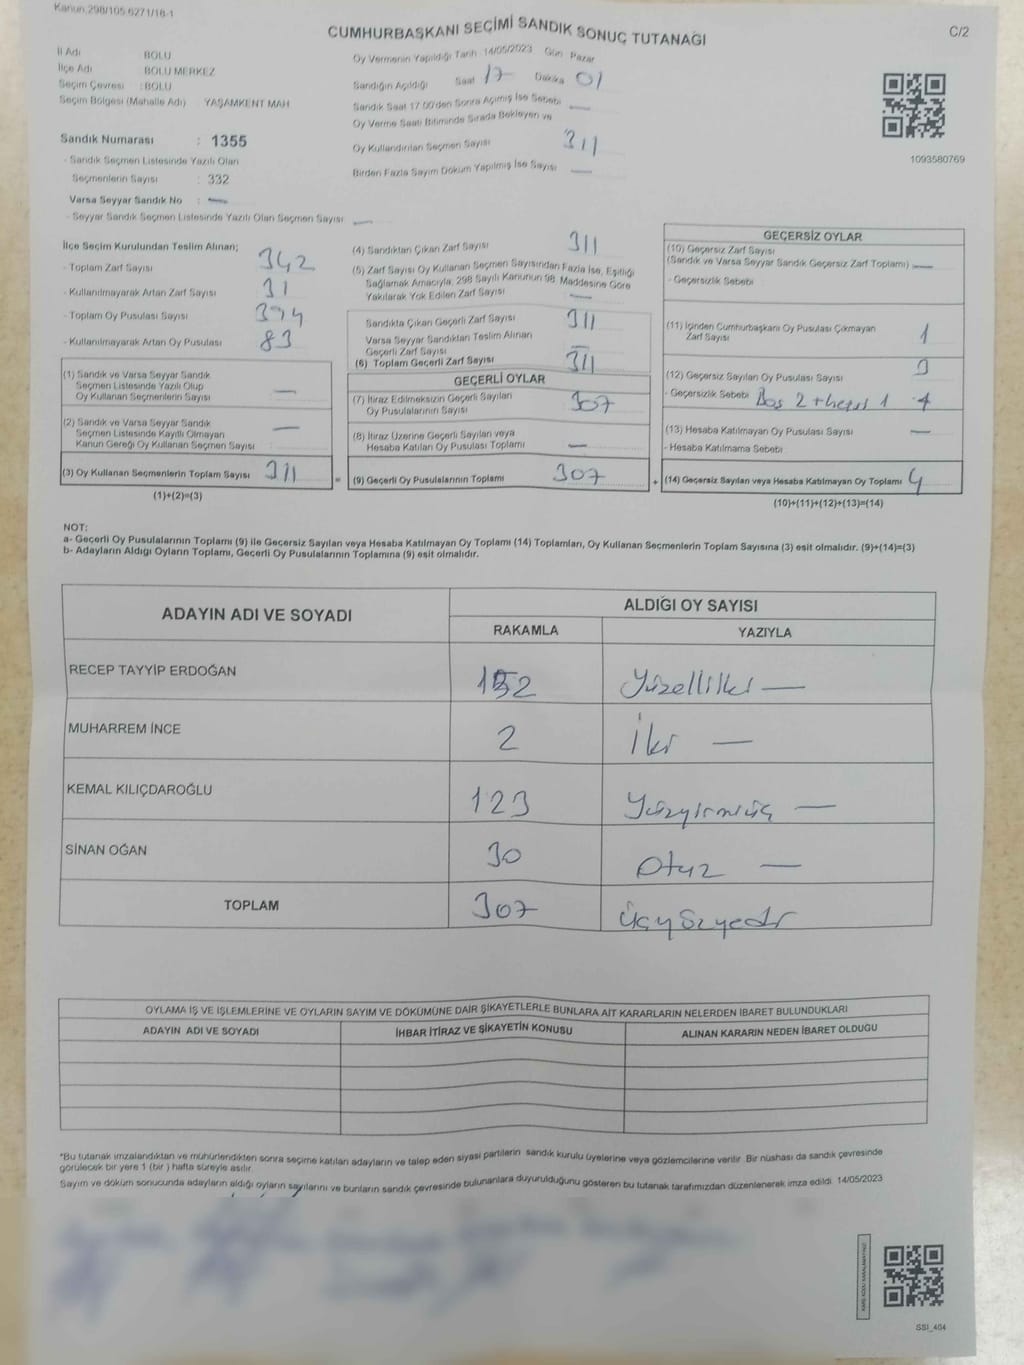 Kanun:298/105,6271/16-1
CUMHURBAŞKANI SEÇİMİ SANDIK SONUÇ TUTANAĞI
C/2
İl Adı BOLU
İlçe Adı BOLU MERKEZ
Seçim Çevresi : BOLU
Seçim Bölgesi (Mahalle Adı) YAŞAMKENT MAH
Oy Vermenin Yapıldığı Tarih 14/05/2023 Gün Pazar
Sandığın Açıldığı Saat 17 Dakika 01
Sandık Saat 17.00'den Sonra Açılmış İse Sebebi —
Oy Verme Saati Bitiminde Sırada Bekleyen ve
Oy Kullandırılan Seçmen Sayısı 311
Birden Fazla Sayım Döküm Yapılmış İse Sayısı —
1093580769
Sandık Numarası : 1355
- Sandık Seçmen Listesinde Yazılı Olan
Seçmenlerin Sayısı : 332
Varsa Seyyar Sandık No : —
- Seyyar Sandık Seçmen Listesinde Yazılı Olan Seçmen Sayısı —
İlçe Seçim Kurulundan Teslim Alınan;
- Toplam Zarf Sayısı 342
- Kullanılmayarak Artan Zarf Sayısı 31
- Toplam Oy Pusulası Sayısı 394
- Kullanılmayarak Artan Oy Pusulası 83
(1) Sandık ve Varsa Seyyar Sandık
Seçmen Listesinde Yazılı Olup
Oy Kullanan Seçmenlerin Sayısı —
(2) Sandık ve Varsa Seyyar Sandık
Seçmen Listesinde Kayıtlı Olmayan
Kanun Gereği Oy Kullanan Seçmen Sayısı —
(3) Oy Kullanan Seçmenlerin Toplam Sayısı 311 =
(1)+(2)=(3)
(4) Sandıktan Çıkan Zarf Sayısı 311
(5) Zarf Sayısı Oy Kullanan Seçmen Sayısından Fazla İse, Eşitliği
Sağlamak Amacıyla, 298 Sayılı Kanunun 98. Maddesine Göre
Yakılarak Yok Edilen Zarf Sayısı —
Sandıkta Çıkan Geçerli Zarf Sayısı 311
Varsa Seyyar Sandıktan Teslim Alınan
Geçerli Zarf Sayısı —
(6) Toplam Geçerli Zarf Sayısı 311
GEÇERLİ OYLAR
(7) İtiraz Edilmeksizin Geçerli Sayılan
Oy Pusulalarının Sayısı 307
(8) İtiraz Üzerine Geçerli Sayılan veya
Hesaba Katılan Oy Pusulası Toplamı —
(9) Geçerli Oy Pusulalarının Toplamı 307 +
GEÇERSİZ OYLAR
(10) Geçersiz Zarf Sayısı
(Sandık ve Varsa Seyyar Sandık Geçersiz Zarf Toplamı) —
- Geçersizlik Sebebi
(11) İçinden Cumhurbaşkanı Oy Pusulası Çıkmayan
Zarf Sayısı 1
(12) Geçersiz Sayılan Oy Pusulası Sayısı 3
- Geçersizlik Sebebi Boş 2 1
(13) Hesaba Katılmayan Oy Pusulası Sayısı —
- Hesaba Katılmama Sebebi
(14) Geçersiz Sayılan veya Hesaba Katılmayan Oy Toplamı 4
(10)+(11)+(12)+(13)=(14)
NOT:
a- Geçerli Oy Pusulalarının Toplamı (9) ile Geçersiz Sayılan veya Hesaba Katılmayan Oy Toplamı (14) Toplamları, Oy Kullanan Seçmenlerin Toplam Sayısına (3) eşit olmalıdır. (9)+(14)=(3)
b- Adayların Aldığı Oyların Toplamı, Geçerli Oy Pusulalarının Toplamına (9) eşit olmalıdır.
ADAYIN ADI VE SOYADI
ALDIĞI OY SAYISI
RAKAMLA YAZIYLA
RECEP TAYYİP ERDOĞAN 152 Yüzelliiki —
MUHARREM İNCE 2 İki —
KEMAL KILIÇDAROĞLU 123 Yüzyirmiüç —
SİNAN OĞAN 30 Otuz —
TOPLAM 307 Üçyüzyedi
OYLAMA İŞ VE İŞLEMLERİNE VE OYLARIN SAYIM VE DÖKÜMÜNE DAİR ŞİKAYETLERLE BUNLARA AİT KARARLARIN NELERDEN İBARET BULUNDUKLARI
ADAYIN ADI VE SOYADI İHBAR İTİRAZ VE ŞİKAYETİN KONUSU ALINAN KARARIN NEDEN İBARET OLDUĞU
*Bu tutanak imzalandıktan ve mühürlendikten sonra seçime katılan adayların ve talep eden siyasi partilerin sandık kurulu üyelerine veya gözlemcilerine verilir. Bir nüshası da sandık çevresinde
görülecek bir yere 1 (bir ) hafta süreyle asılır.
Sayım ve döküm sonucunda adayların aldığı oyların sayılarını ve bunların sandık çevresinde bulunanlara duyurulduğunu gösteren bu tutanak tarafımızdan düzenlenerek imza edildi. 14/05/2023
KARE KODU KARALAMAYINIZ
SSI_464